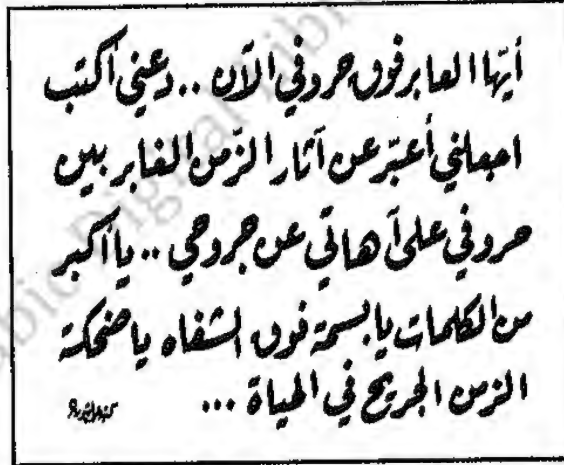 أيّها العابر فوق حروفي الآن .. دعيني أكتب
اجعلني أعبّر عن آثار الزّمن الغابر بين
حروفي على آهاتي عن جروحي .. يا أكبر
من الكلمات يا بسمة فوق الشفاه يا ضحكة
الزمن الجريح في الحياة ...